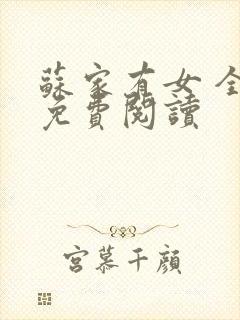 蘇家有女 全
免費閱讀
宮慕千顏